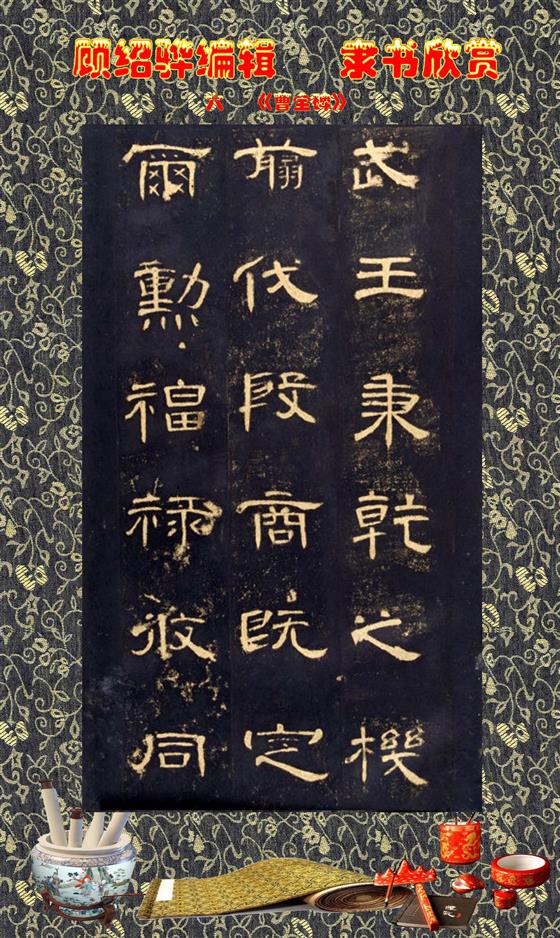 顾绍骅编辑 隶书欣赏
六 《曹全碑》
武王秉乾之機
翦伐殷商既定
爾勲福祿攸同